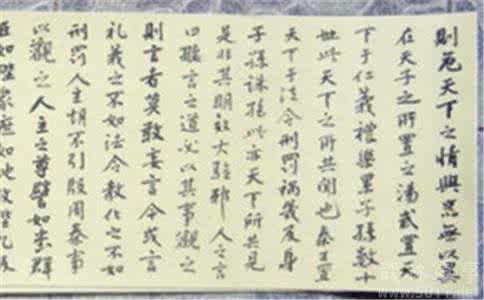 則危天下之情與器無以異
在天子之所置之湯武置天
下于仁義禮樂累子孫數十
世此天下之所共聞也秦王置
天下于法令刑罰禍幾及身
子孫誅絕此亦天下所共見
是非其明效大驗邪人之言
曰聽言之道必以其事觀之
則言者莫敢妄言今或言
礼義之不如法令教化之不如
刑罰人主胡不引殷周秦事
以觀之人主之尊譬如堂群
臣如陛衆庶如地故陛九級